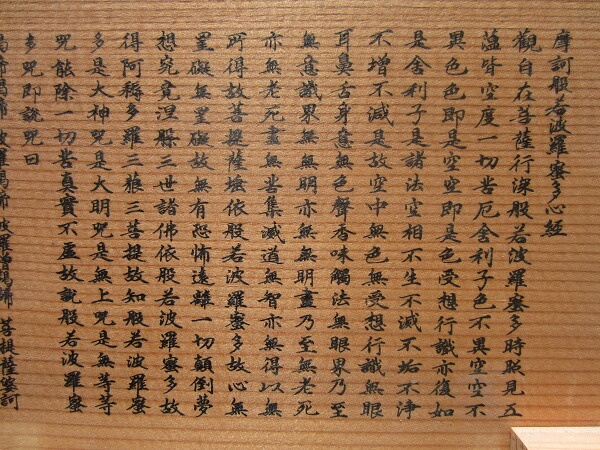 摩訶般若波羅蜜多心経
觀自在菩薩行深般若波羅蜜多時照見五
蘊皆空度一切苦厄舍利子色不異空空不
異色色即是空空即是色受想行識亦復如
是舍利子是諸法空相不生不滅不垢不淨
不增不減是故空中無色無受想行識無眼
耳鼻舌身意無色聲香味觸法無眼界乃至
無意識界無無明亦無無明盡乃至無老死
亦無老死盡無苦集滅道無智亦無得以無
所得故菩提薩埵依般若波羅蜜多故心無
罣礙無罣礙故無有恐怖遠離一切顛倒夢
想究竟涅槃三世諸佛依般若波羅蜜多故
得阿耨多羅三藐三菩提故知般若波羅蜜
多是大神咒是大明咒是無上咒是無等等
咒能除一切苦真實不虛故説般若波羅蜜
多咒即説咒曰
羯帝羯帝 波羅羯帝 波羅僧羯帝 菩提薩婆訶